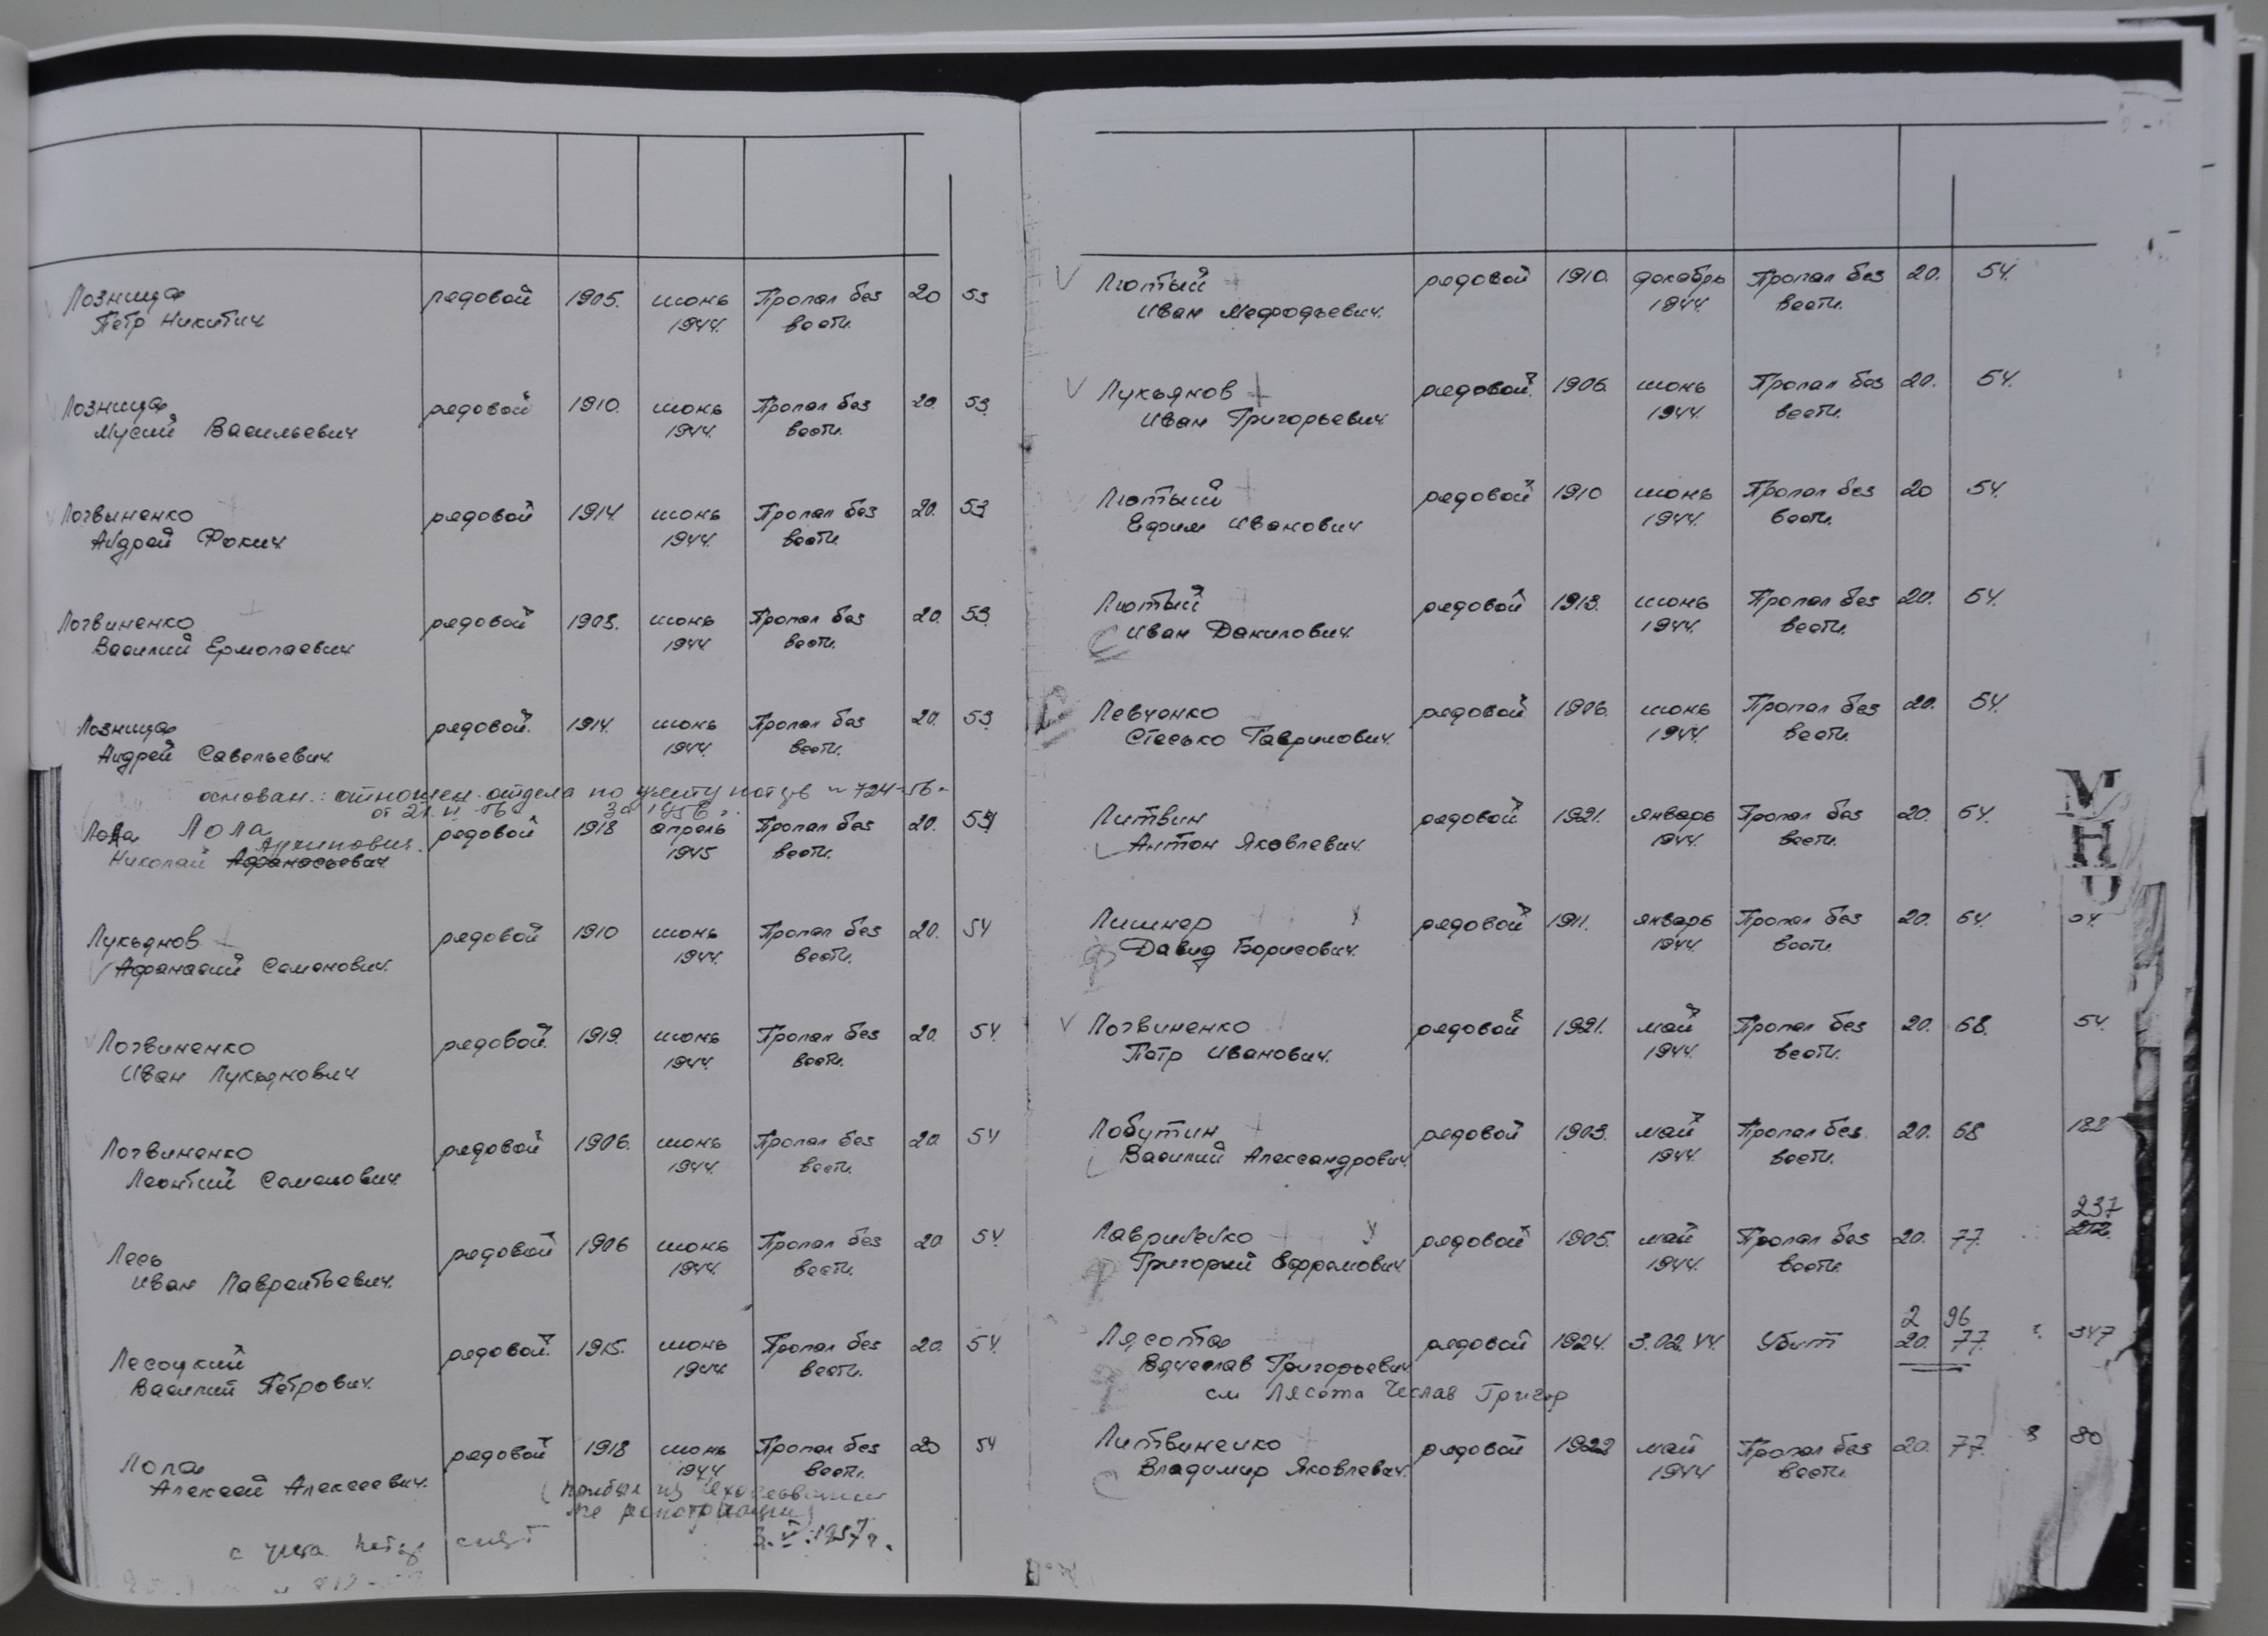 Лозница рядовой 1905. июнь Пропал без 20 53
Петр Никитич 1944. вести.
Лозница рядовой 1910. июнь Пропал без 20. 53.
Мусий Васильевич 1944. вести.
Логвыненко рядовой 1914. июнь Пропал без 20. 53
Андрей Фокич 1944. вести.
Логвиненко рядовой 1903. июнь Пропал без 20. 53.
Василий Ермолаевич 1944 вести.
Лозница рядовой. 1914. июнь Пропал без 20. 53
Андрей Савельевич 1944. вести.
основан.: отношен. отдела по учету потерь 724
Лола рядовой 1918 апрель Пропал без 20. 54
Архипович.
Николай Афанасьевич 1945 вести.
Лукьянов + рядовой 1910 июнь Пропал без 20. 54
Афанасий Семенович. 1944. вести.
Логвиненко рядовой. 1919. июнь Пропал без 20. 54.
Иван Лукьянович 1944. вести.
Логвиненко рядовой 1906. июнь Пропал без 20. 54
Леонтий Семенович 1944. вести.
Лесь рядовой 1906 июнь Пропал без 20 54.
Иван Лаврентьевич. 1944. вести.
Лесоцкий рядовой. 1915. июнь Пропал без 20. 54.
Василий Петрович. 1944 вести.
Лопа рядовой 1918 июнь Пропал без 20 54
Алексей Алексеевич. 1944 вести.
прибыл из
3.V.1957г.
с учета
V Лютый + рядовой 1910. декабрь Пропал без 20. 54.
Иван Мефодьевич. 1944. вести.
V Лукьянов + рядовой. 1906. июнь Пропал без 20. 54.
Иван Григорьевич 1944. вести.
Лютый + рядовой 1910 июнь Пропал без 20 54.
Ефим Иванович 1944. вести.
Лютый рядовой 1913. июнь Пропал без 20. 54.
Иван Данилович. 1944. вести.
Левченко рядовой 1906. июнь Пропал без 20. 54.
Стесько Гаврилович. 1944. вести.
Литвин рядовой 1921. январь Пропал без 20. 64.
Антон Яковлевич. 1944. вести.
Лишнер рядовой 1911. январь Пропал без 20. 64.
Давид Борисович. 1944. вести.
V Логвиненко рядовой 1921. май Пропал без 20. 68. 54.
Петр Иванович. 1944. вести.
Лобутин + рядовой 1903. май Пропал без 20. 68 188
Василий Александрович. 1944. вести.
237
Лавриненко рядовой 1905. май Пропал без 20. 77. 212.
Григорий Ефремович. 1944. вести.
2 96
Лясота рядовой 1924. 3.02.44. Убит 20. 77. 347
Вячеслав Григорьевич
см Лясота Чеслав Григор
Литвиненко рядовой 1922 май Пропал без 20. 77. 80
Владимир Яковлевич. 1944 вести.